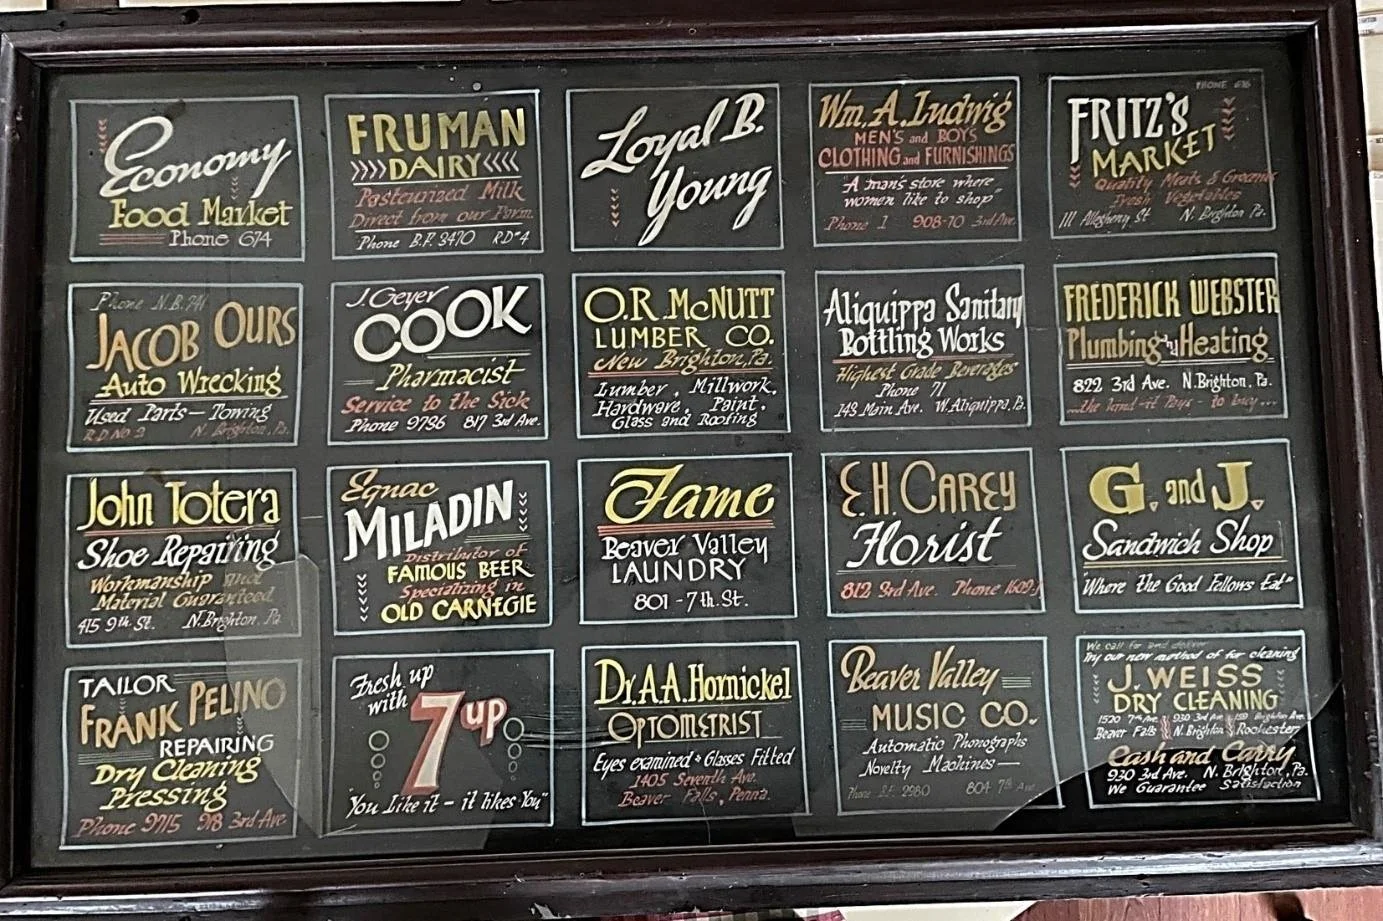 Economy
Food Market
Phone 674
FRUMAN
DAIRY
Pasteurized Milk
Direct from our Farm.
Phone B.F. 3470 RD#4
Loyal B.
Young
Wm. A. Ludwig
MEN'S and BOYS
CLOTHING and FURNISHINGS
"A man's store where
women like to shop"
Phone 1 908-10 3rd Ave.
PHONE 616
FRITZ'S
MARKET
Quality Meats & Groceries
Fresh Vegetables
111 Allegheny St N. Brighton Pa.
Phone N.B. 741
JACOB OURS
Auto Wrecking
Used Parts — Towing
R.D. NO 2 N. Brighton, Pa.
J. Geyer
COOK
Pharmacist
Service to the Sick
Phone 9736 817 3rd Ave.
O.R. McNUTT
LUMBER CO.
New Brighton, Pa.
Lumber, Millwork,
Hardware, Paint,
Glass and Roofing
Aliquippa Sanitary
Bottling Works
"Highest Grade Beverages"
Phone 71
143 Main Ave. W. Aliquippa, Pa.
FREDERICK WEBSTER
Plumbing and Heating
822 3rd Ave. N. Brighton, Pa.
...the kind-it Pays - to buy...
John Totera
Shoe Repairing
Workmanship and
Material Guaranteed
415 9th St. N. Brighton, Pa
Egnac
MILADIN
Distributor of
FAMOUS BEER
Specializing in
OLD CARNEGIE
Fame
Beaver Valley
LAUNDRY
801 - 7th. St.
E.H. CAREY
Florist
812 3rd Ave. Phone 1609-J
G. and J.
Sandwich Shop
"Where the Good Fellows Eat"
TAILOR
FRANK PELINO
REPAIRING
Dry Cleaning
Pressing
Phone 9715 918 3rd Ave
Fresh up
with
7up
"You Like it - it likes You"
Dr. A.A. Hornickel
OPTOMETRIST
Eyes examined & Glasses Fitted
1405 Seventh Ave.
Beaver Falls, Penna.
Beaver Valley
MUSIC CO.
Automatic Phonographs
Novelty Machines —
Phone B.F. 2980 804 7th Ave
We call for and deliver
Try our new method of fur cleaning
J. WEISS
DRY CLEANING
1520 7th Ave. 930 3rd Ave Brighton Ave.
Beaver Falls N. Brighton Rochester
Cash and Carry
930 3rd Ave. N. Brighton, Pa.
We Guarantee Satisfaction